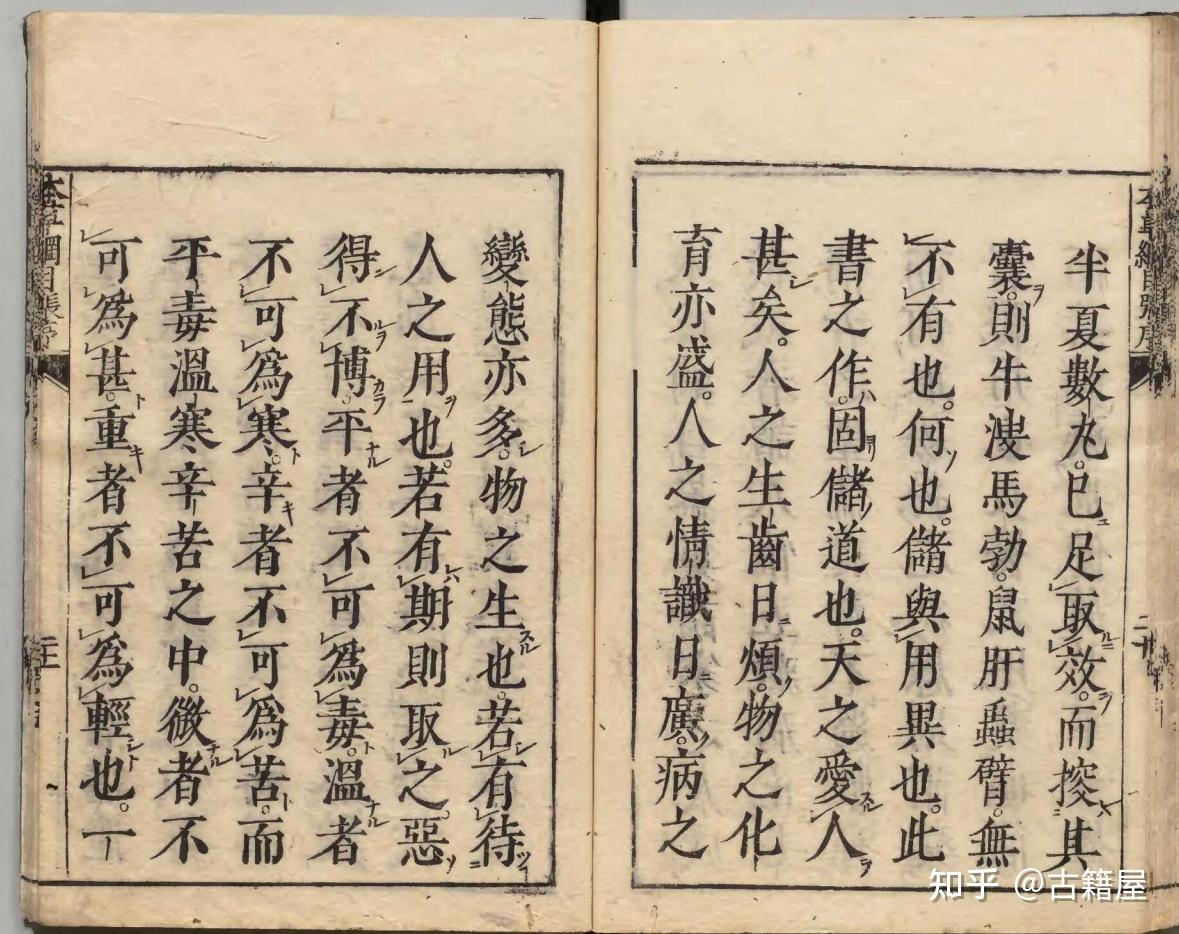 半夏數丸。已足取效。而探其
囊。則牛溲馬勃。鼠肝蟲臂。無
不有也。何也。儲與用異也。此
書之作。固儲道也。天之愛人
甚矣。人之生齒日煩。物之化
育亦盛。人之情識日廣。病之
變態亦多。物之生也。若有待
人之用也。若有期則取之。惡
得不博。平者不可爲毒。溫者
不可爲寒。辛者不可爲苦。而
平毒溫寒辛苦之中。微者不
可爲甚。重者不可爲輕也。一
知乎 @古籍屋